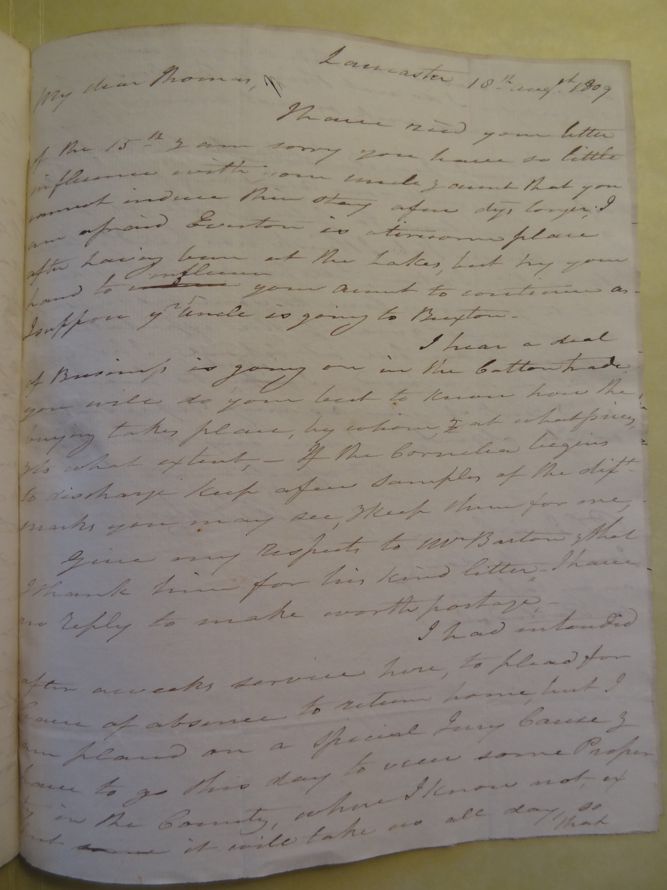 Lancaster 18th Augst 1809
My dear Thomas,
I have rec'd your letter
of the 15th & am sorry you have so little
influence with your uncle & aunt that you
cannot induce their stay a few dys longer, I
am afraid Everton is a tiresome place
after having been at the Lakes, but try your
hand to influence your aunt to continue as
I suppose yr Uncle is going to Buxton.
I hear a deal
of Business is going on in the Cotton trade
you will do your best to know how the
buying takes place, by whom, & at what prices,
& to what extent, - If the Cornelia begins
to discharge keep a few samples of the difft
marks you may see, & keep them for me,
Give my respects to Mr Barton & that
I thank him for his kind letter, I have
no reply to make worth postage,
I had intended
after a weeks service here, to plead for
leave of absence to return home, but I
am placed on a Special Jury Cause &
have to go this day to view some Proper
ty in the County, where I know not, ex
it will take us all day, so
that